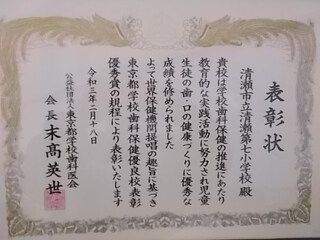 表彰状
清瀬市立清瀬第七小学校 殿
貴校は学校歯科保健の推進にあたり
教育的な実践活動に努力され児童
生徒の歯・口の健康づくりに優秀な
成績を修められました
よって世界保健機関提唱の趣旨に基づき
東京都学校歯科保健優良校表彰
優秀賞の規程により表彰いたします
令和三年二月十八日
公益社団法人 東京都学校歯科医会
会長 末高英世